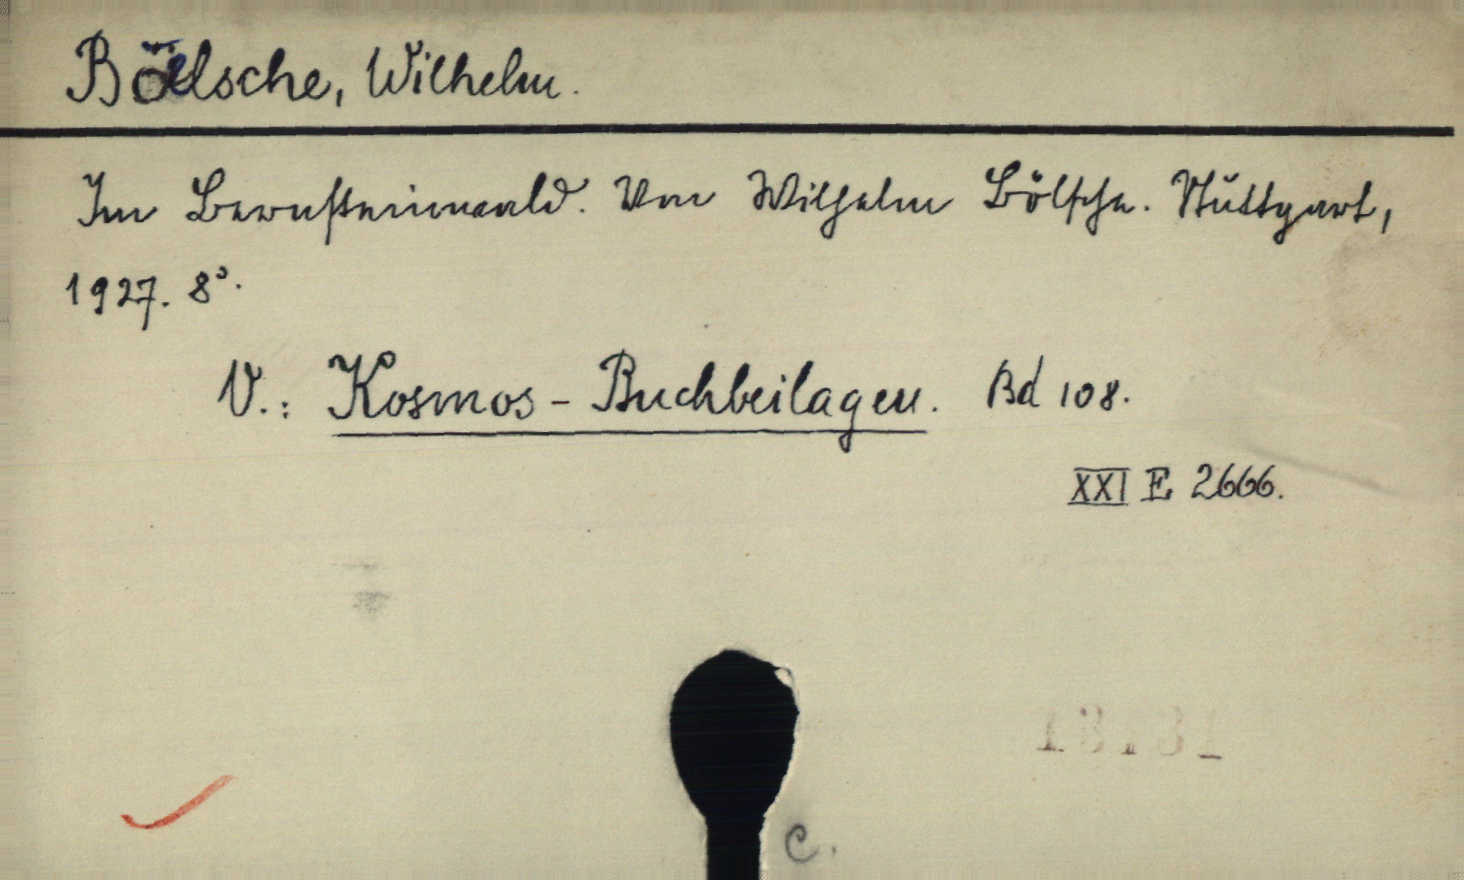 Bölsche, Wilhelm.
Im Bernsteinwald. Von Wilhelm Bölsche. Stuttgart,
1927. 8°.
V.: Kosmos-Buchbeilagen. Bd 108.
XXI E 2666.
c.